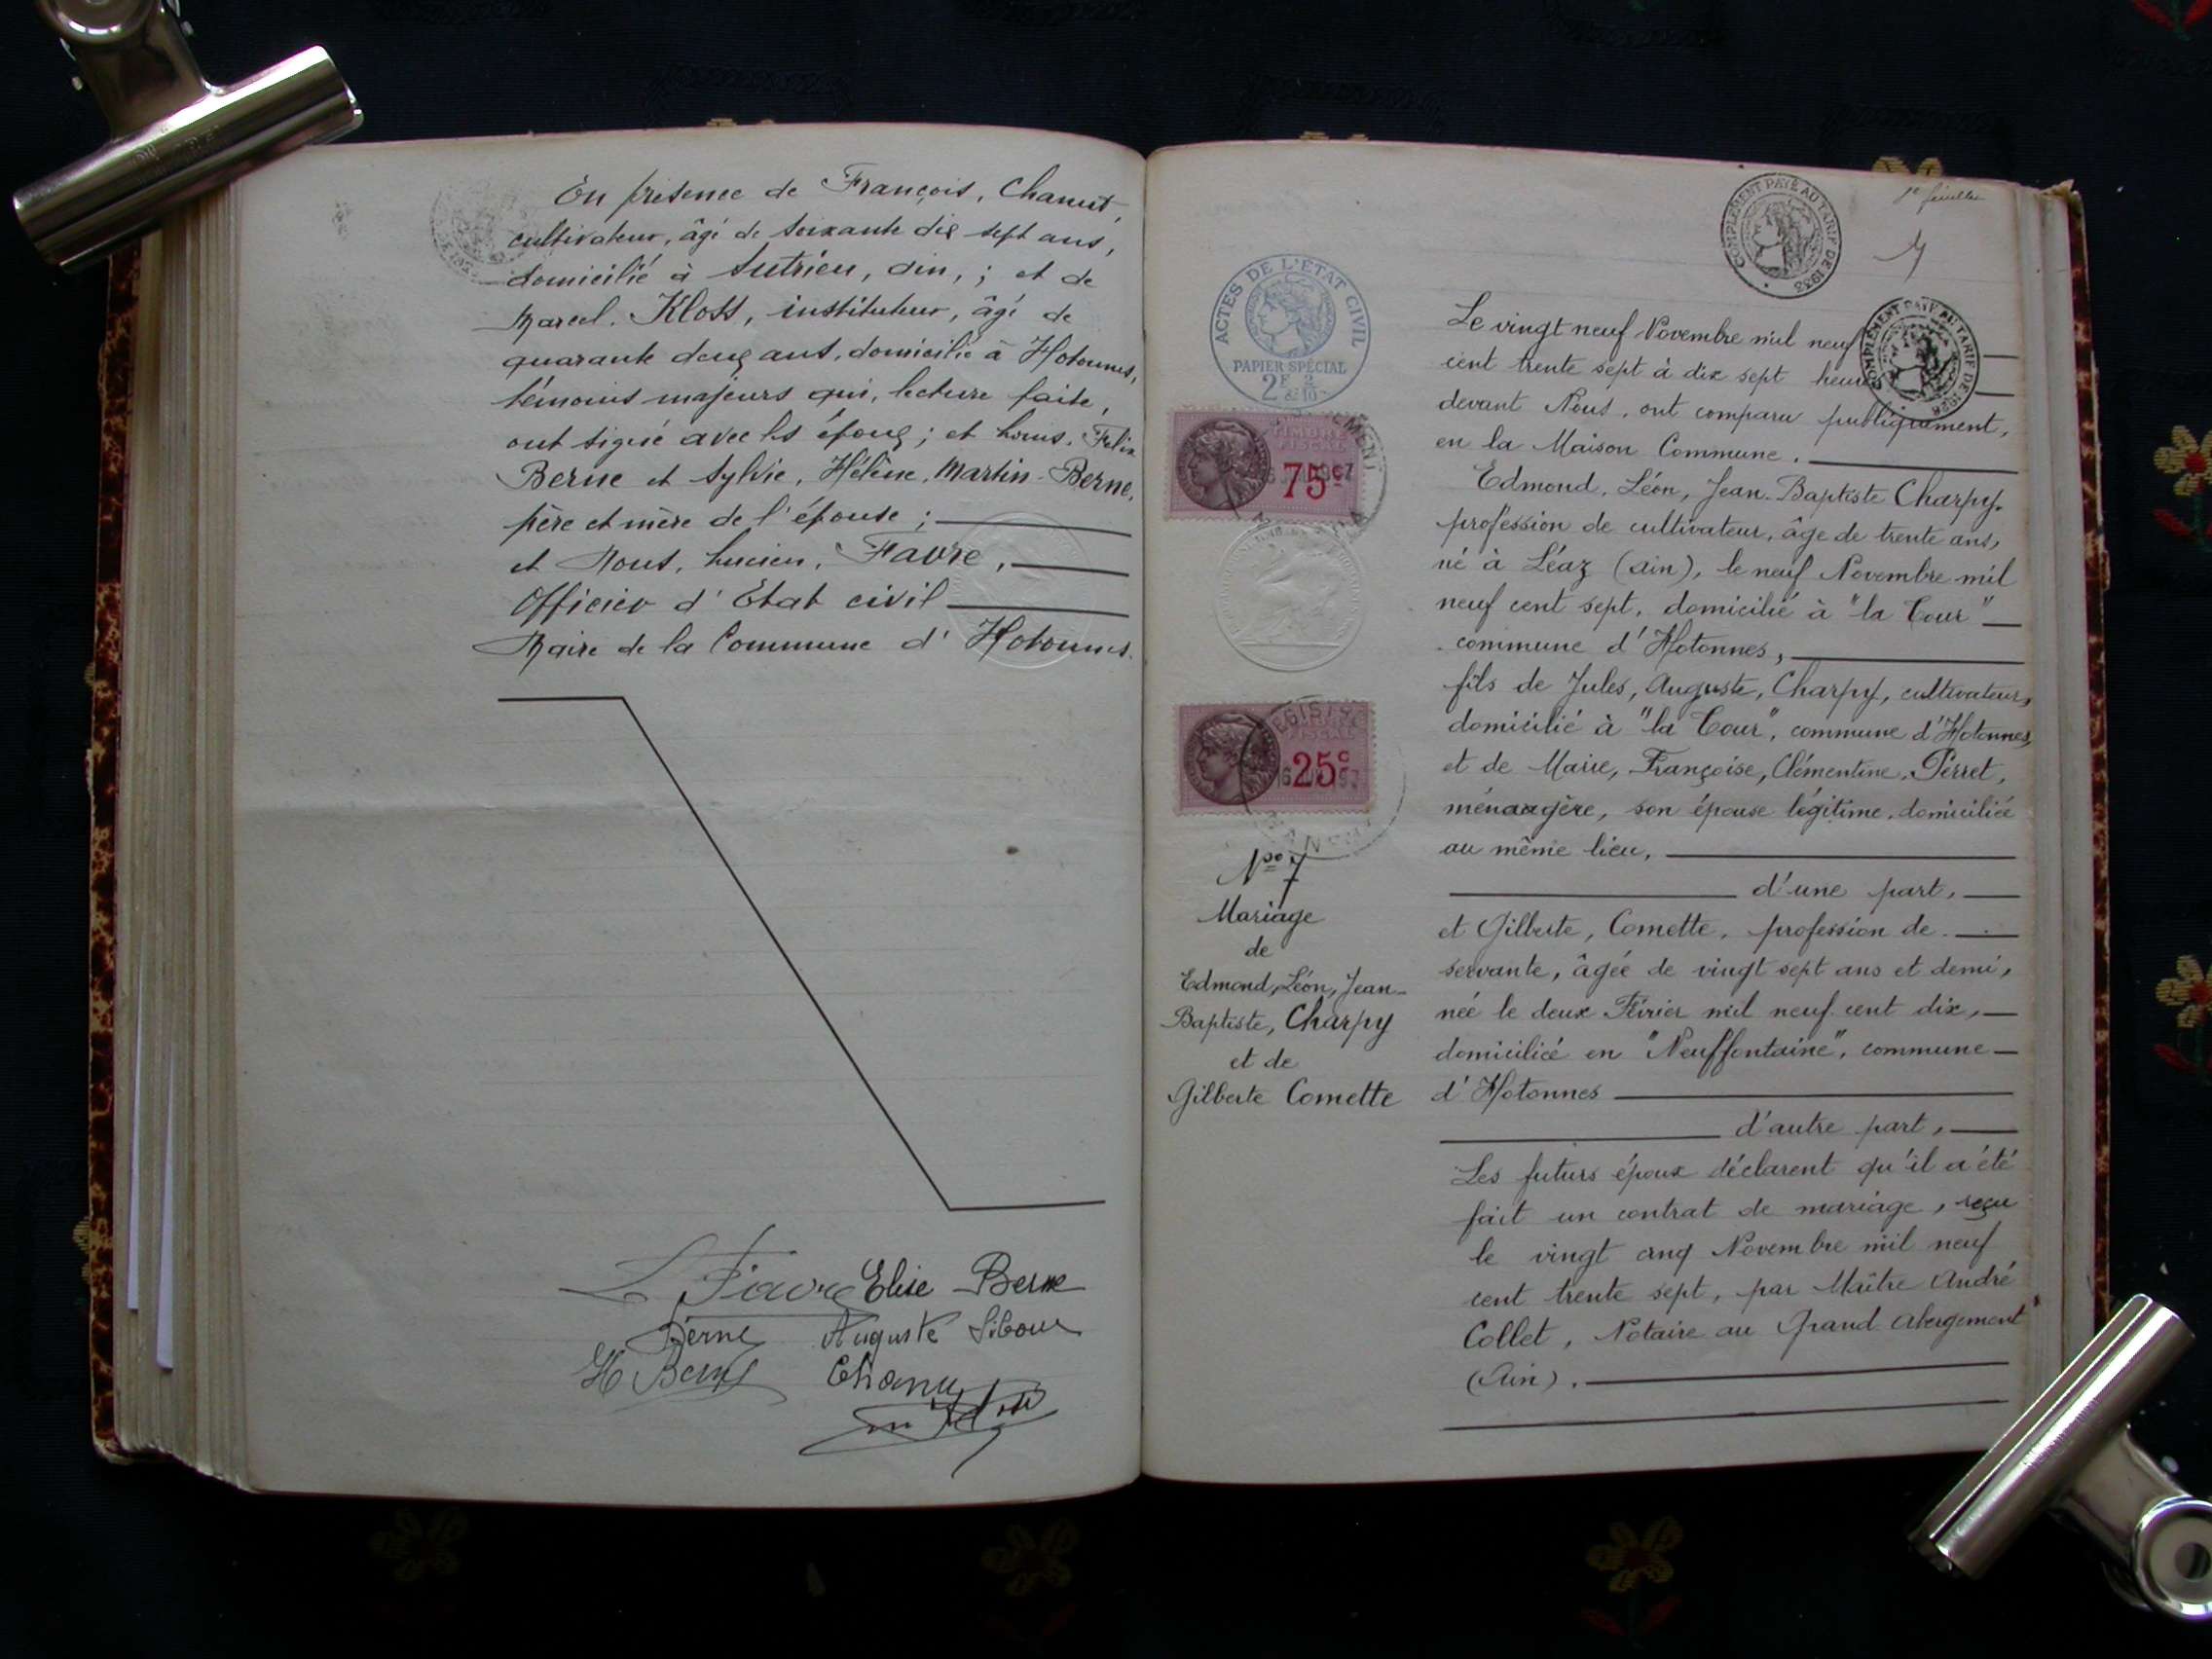 En présence de François, Chanut,
cultivateur, âgé de soixante dix sept ans,
domicilié à Sutrieu, Ain, ; et de
Marcel. Klott, instituteur, âgé de
quarante deux ans, domicilié à Hotonnes,
témoins majeurs qui, lecture faite,
ont signé avec les époux ; et Louis, Félix
Berne et Sylvie, Hélène, Martin-Berne,
père et mère de l'épouse ;
et Nous, Lucien, Favre,
Officier d'Etat civil
Maire de la Commune d'Hotonnes.
L Favre Elise Berne
Berne Auguste
H Berne Chanut
1e feuillet
COMPLÉMENT PAYÉ AU TARIF DE 1933
COMPLÉMENT PAYÉ AU TARIF DE 1928
ACTES DE L'ÉTAT CIVIL
PAPIER SPÉCIAL
2F & 2/10
75c
25c
No 7
Mariage
de
Edmond, Léon, Jean-
Baptiste, Charpy
et de
Gilberte Comette
Le vingt neuf Novembre mil neuf
cent trente sept à dix sept heures
devant Nous, ont comparu publiquement,
en la Maison Commune.
Edmond, Léon, Jean-Baptiste Charpy,
profession de cultivateur, âge de trente ans,
né à Léaz (Ain), le neuf Novembre mil
neuf cent sept, domicilié à "la Cour"
commune d'Hotonnes,
fils de Jules, Auguste, Charpy, cultivateur,
domicilié à "la Cour", commune d'Hotonnes,
et de Marie, Françoise, Clémentine, Perret,
ménagère, son épouse légitime, domiciliée
au même lieu,
d'une part,
et Gilberte, Comette, profession de
servante, âgée de vingt sept ans et demi,
née le deux Février mil neuf cent dix,
domiciliée en "Neuffontaine", commune
d'Hotonnes
d'autre part,
Les futurs époux déclarent qu'il a été
fait un contrat de mariage, reçu
le vingt cinq Novembre mil neuf
cent trente sept, par Maître André
Collet, Notaire au Grand Abergement
(Ain).